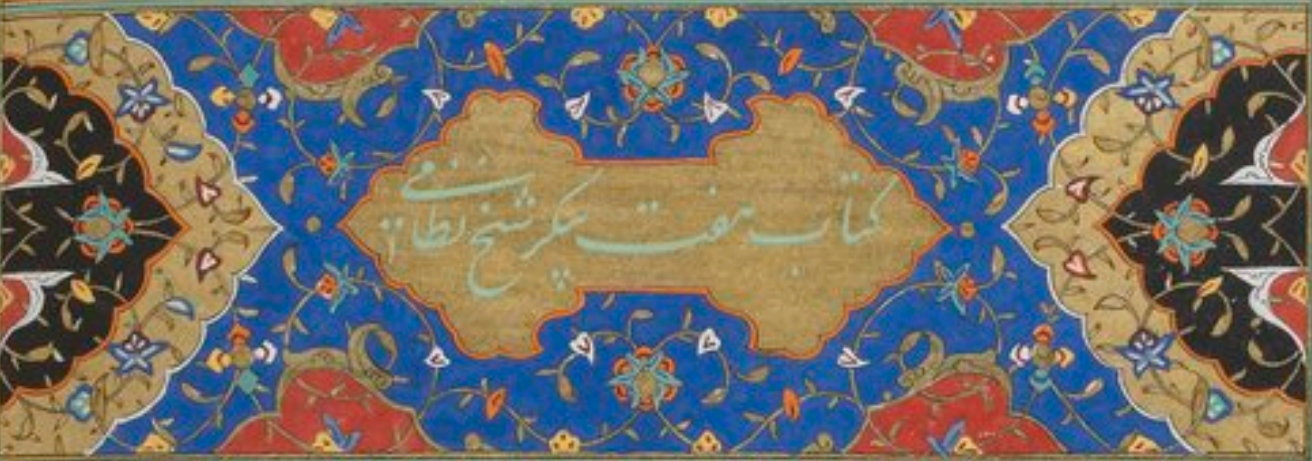 کتاب هفت پیکر شیخ نظامی